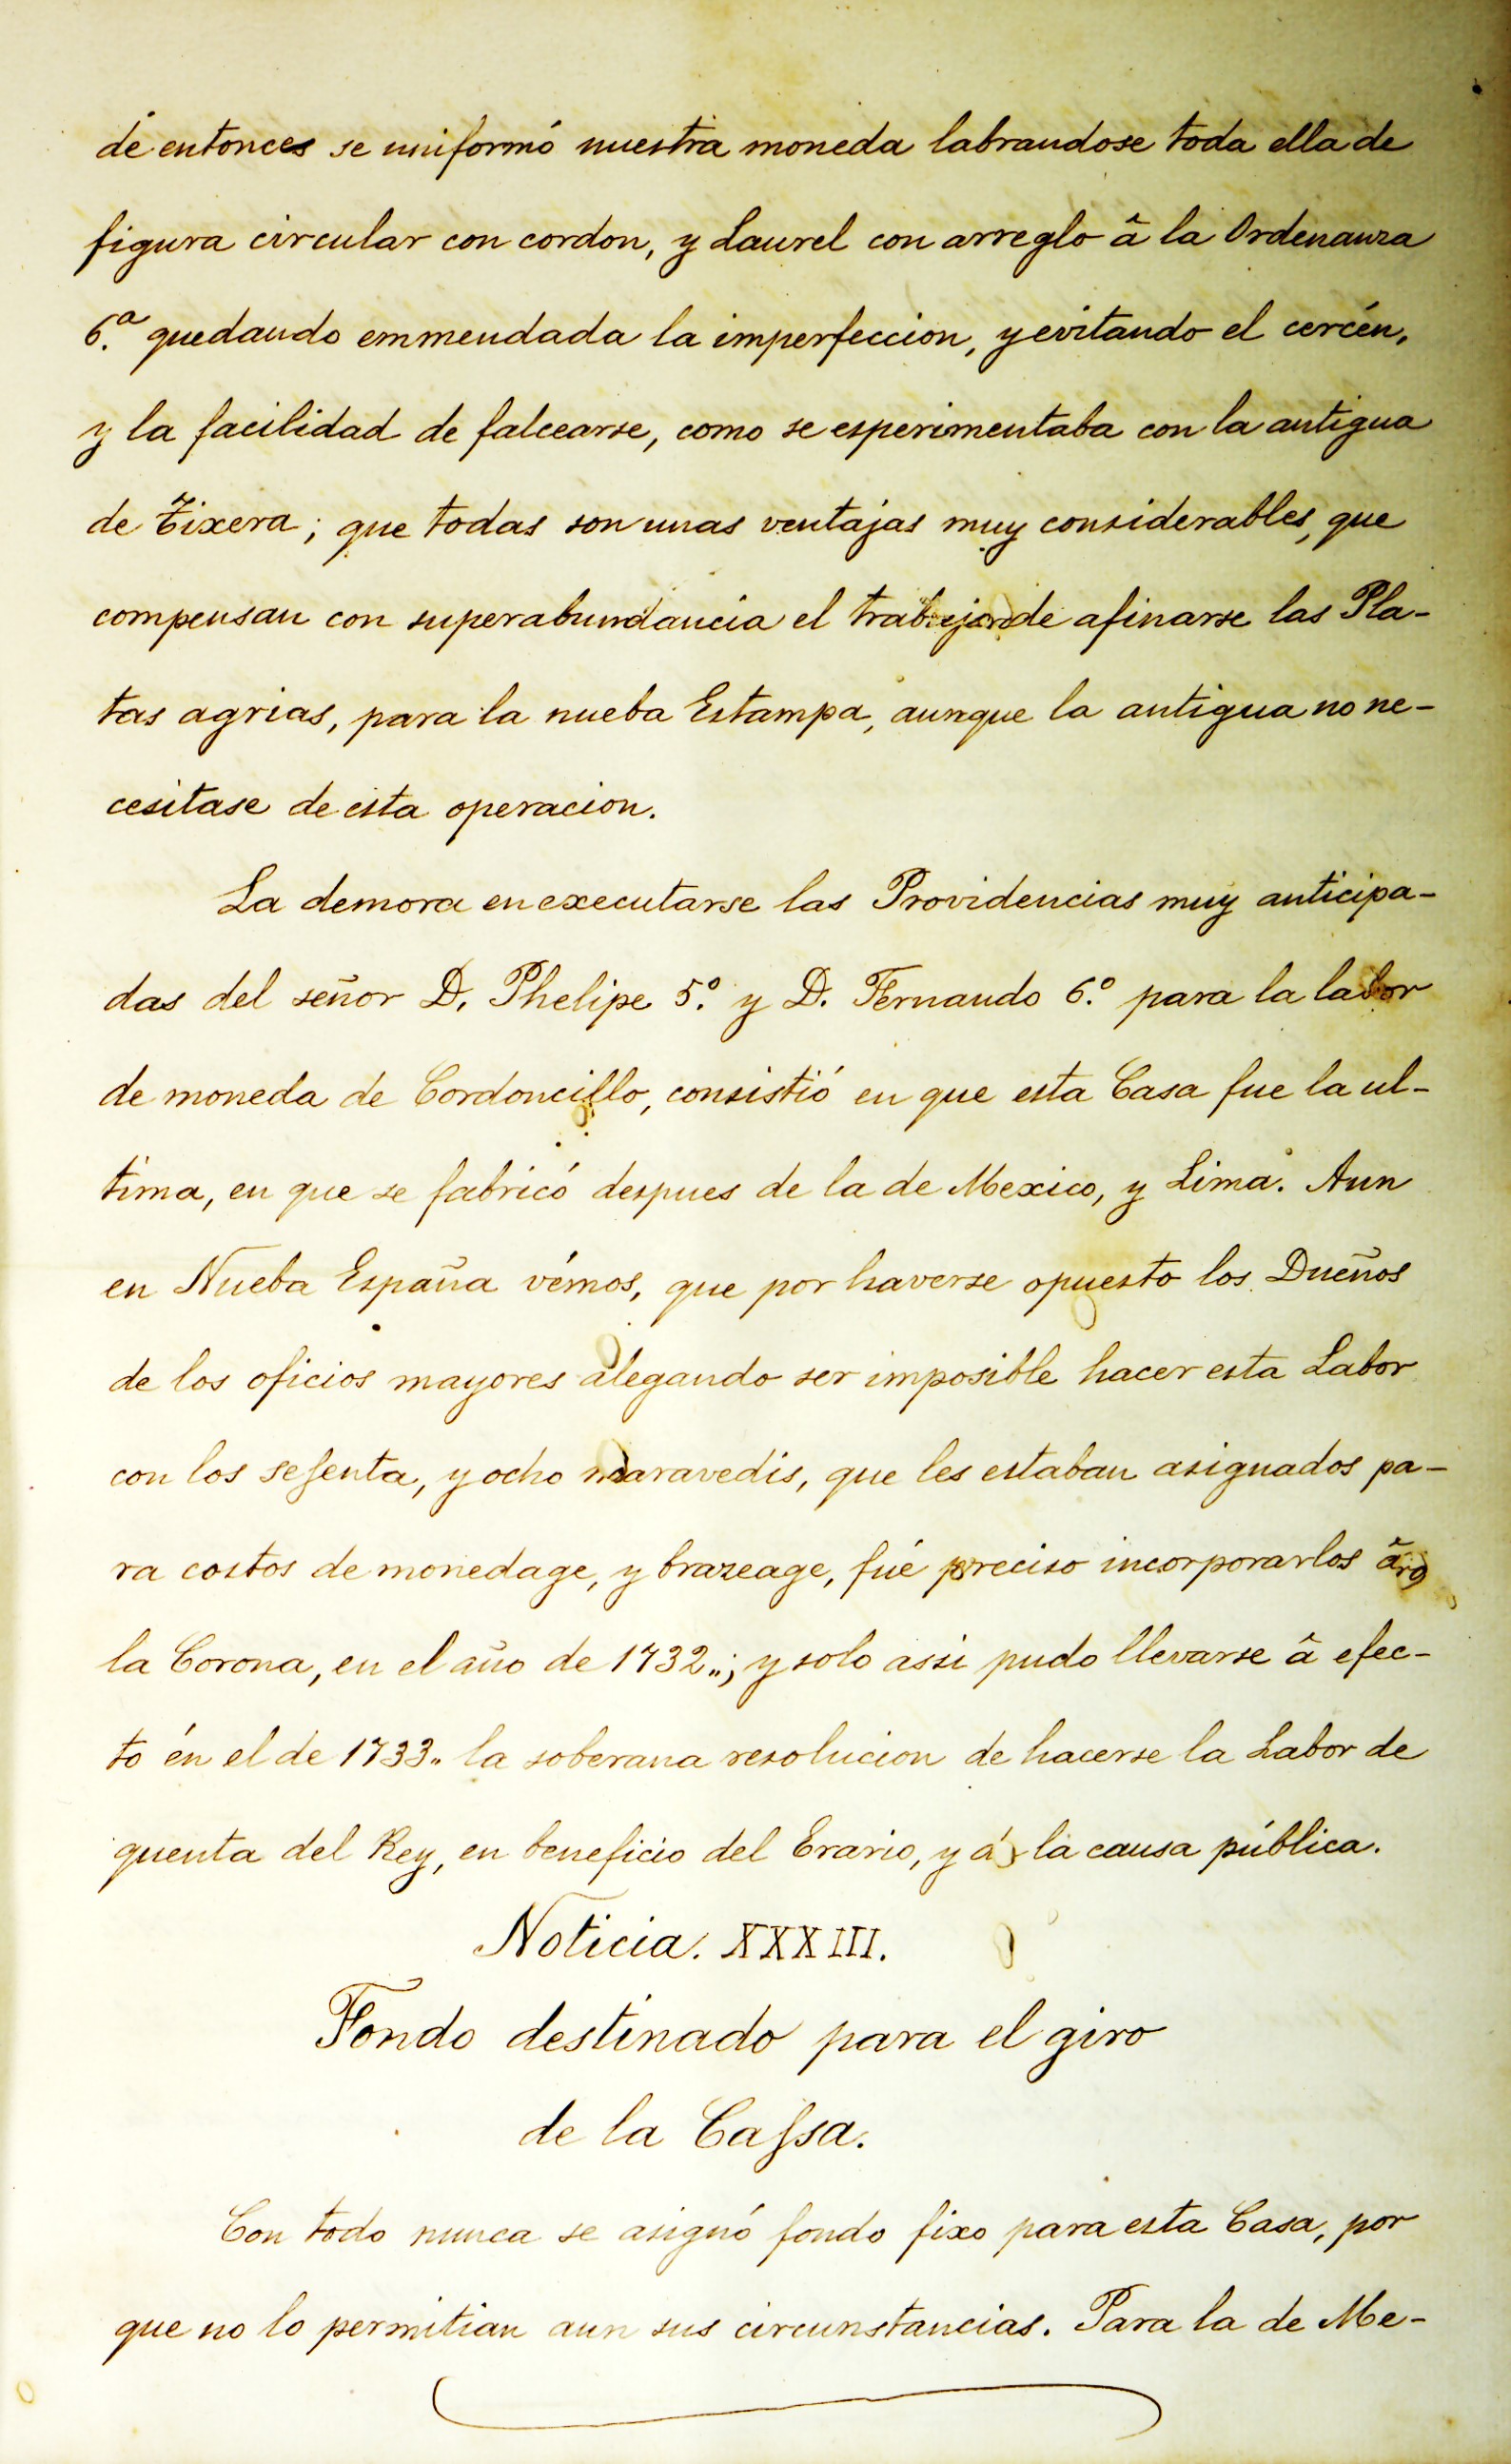 dé entonces se uniformó nuestra moneda labrandose toda ella de
figura circular con cordon, y Laurel con arreglo â la Ordenanza
6.ª quedando emmendada la imperfeccion, y evitando el cercén,
y la facilidad de falcearse, como se esperimentaba con la antigua
de Tixera; que todas son unas ventajas muy considerables, que
compensan con superabundancia el trabajo de afinarse las Pla-
tas agrias, para la nueba Estampa, aunque la antigua no ne-
cesitase de esta operacion.
La demora en executarse las Providencias muy anticipa-
das del señor D. Phelipe 5.º y D. Fernando 6.º para la labor
de moneda de Cordoncillo, consistió en que esta Casa fue la ul-
tima, en que se fabricó despues de la de Mexico, y Lima. Aun
en Nueba España vémos, que por haverse opuesto los Dueños
de los oficios mayores alegando ser imposible hacer esta Labor
con los seſenta, y ocho maravedis, que les estaban asignados pa-
ra costos de monedage, y brazeage, fué preciso incorporarlos â
la Corona, en el año de 1732.,; y solo assi pudo llevarse â efec-
to én el de 1733.. la soberana resolucion de hacerse la Labor de
quenta del Rey, en beneficio del Erario, y á la causa pública.
Noticia. XXXIII.
Fondo destinado para el giro
de la Caſsa.
Con todo nunca se asignó fondo fixo para esta Casa, por
que no lo permitian aun sus circunstancias. Para la de Me-